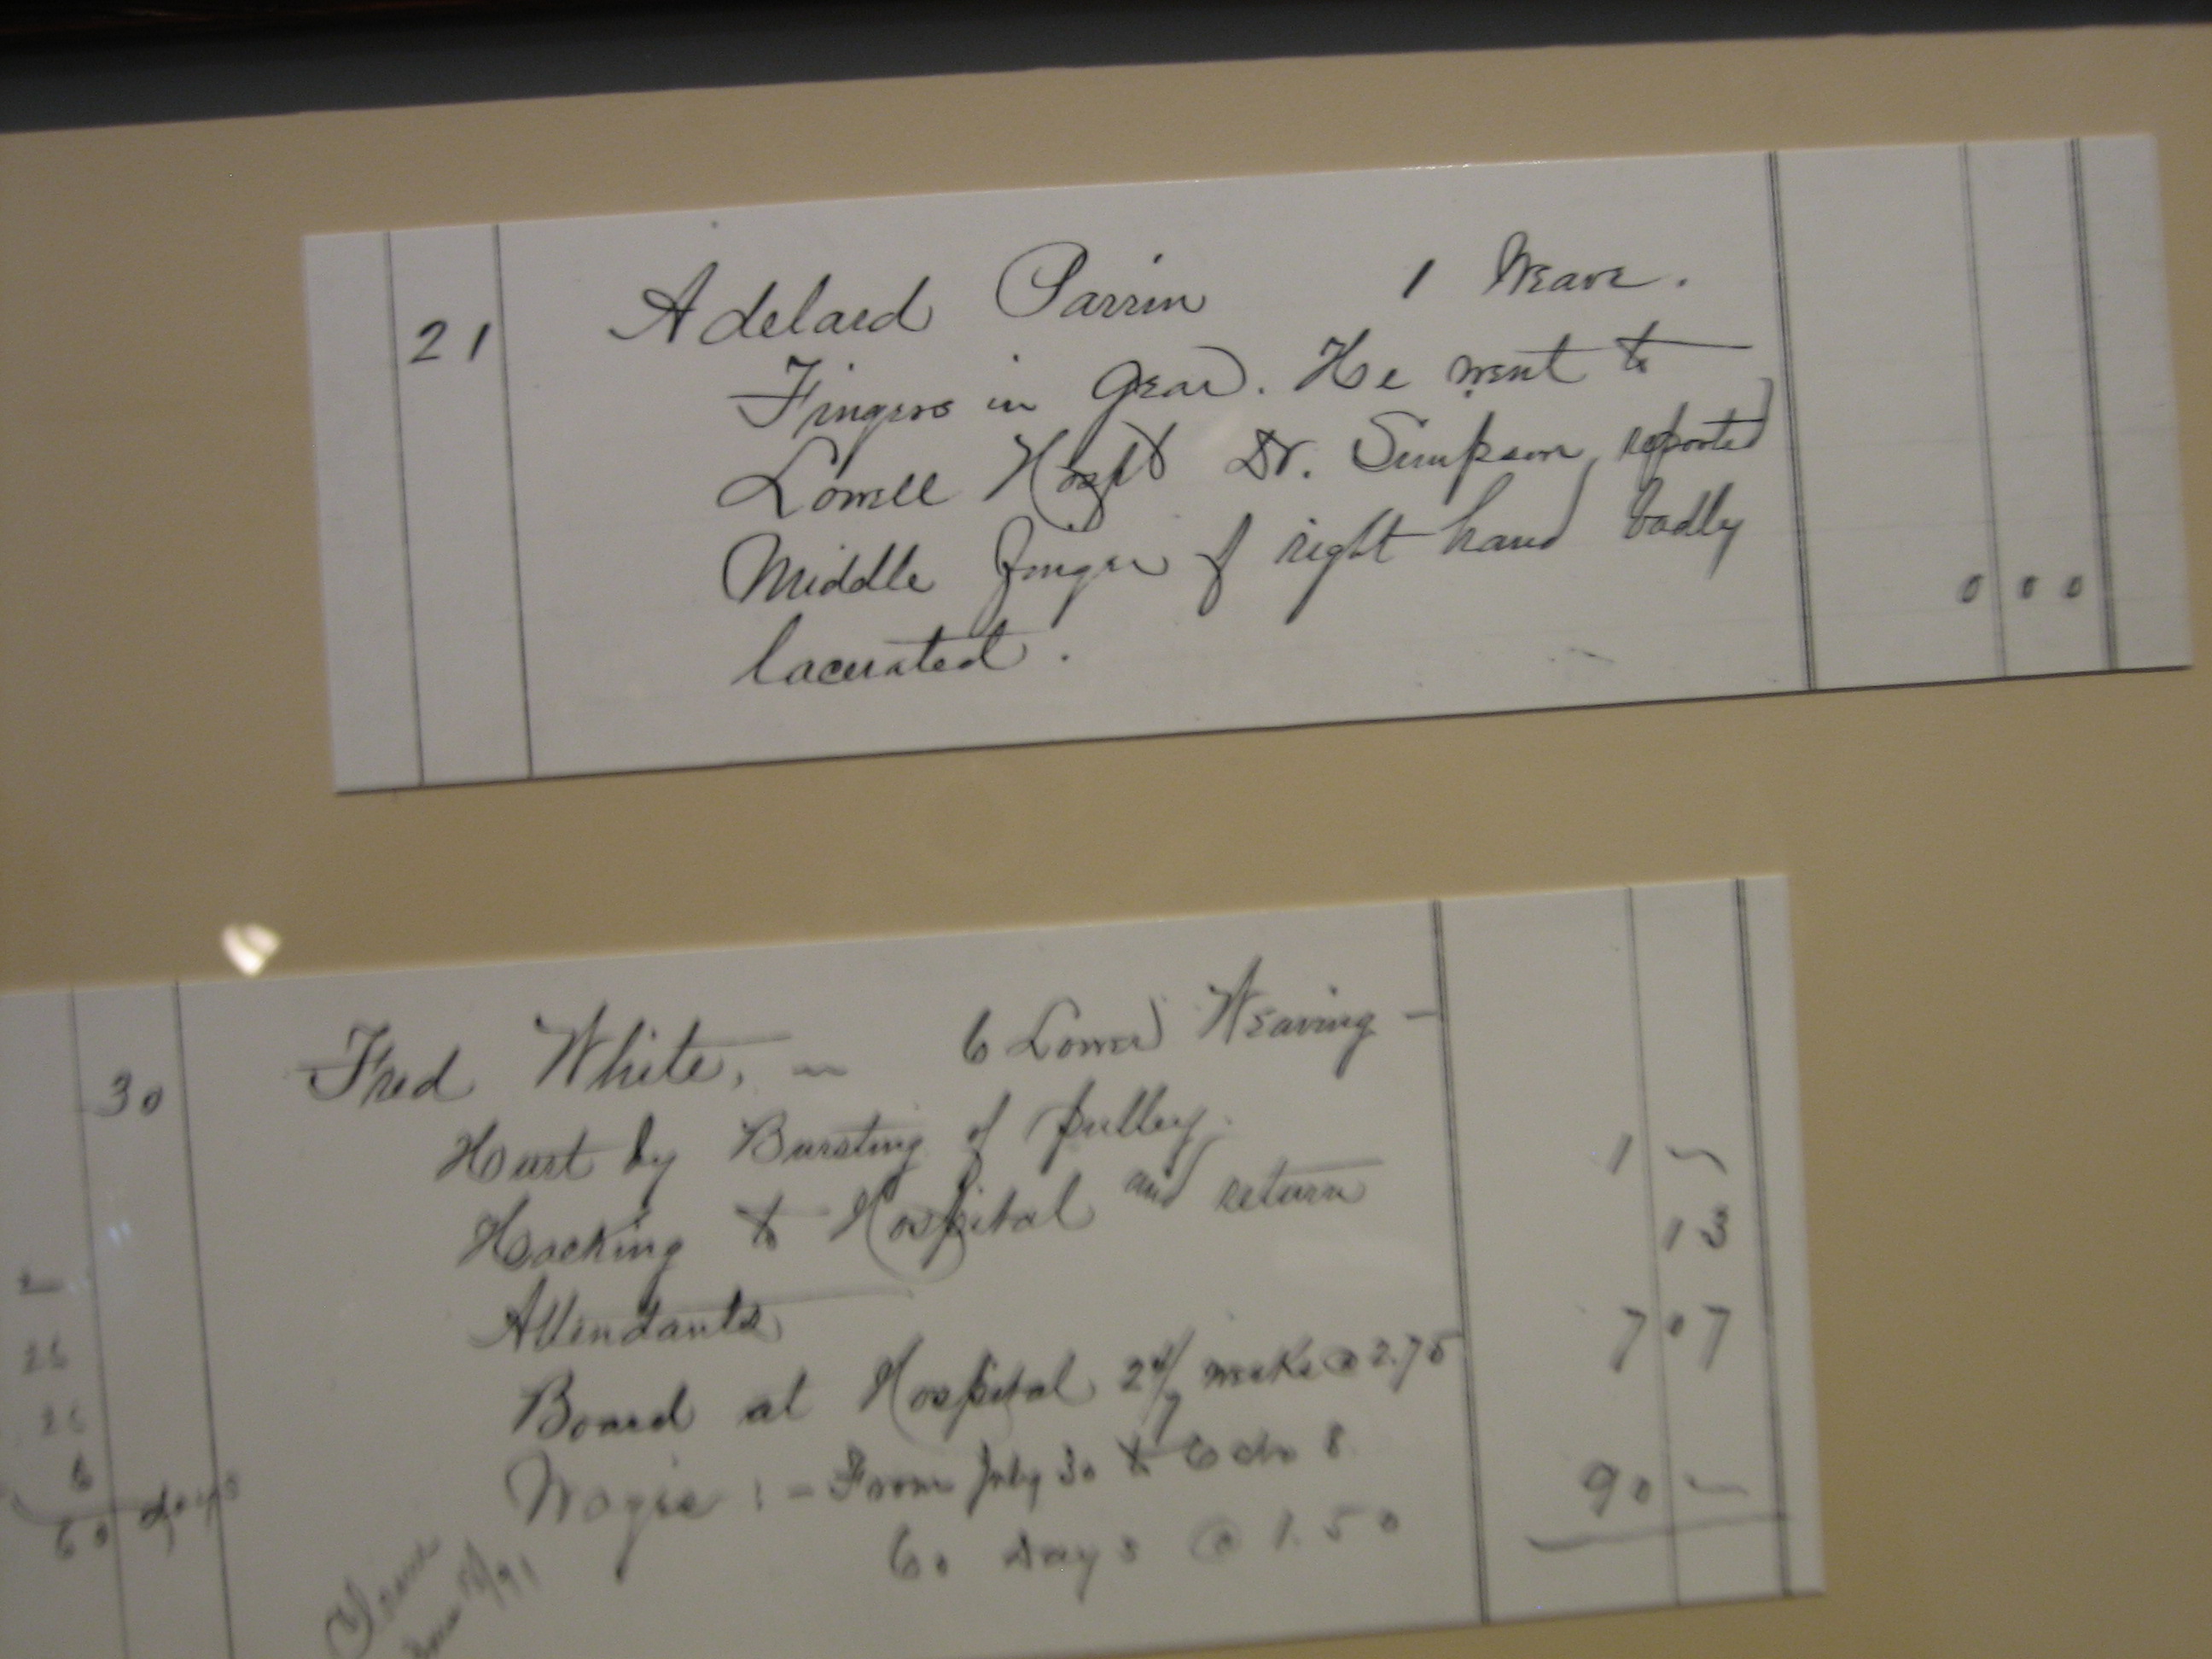 21 Adelard Parrin 1 Weave.
Fingers in Gear. He went to
Lowell Hospt Dr. Simpson reported
Middle finger of right hand badly
lacerated. 0 00
30 Fred White, — 6 Lower Weaving —
Hurt by Bursting of pulley.
Hacking to Hospital and return 1 —
Attendants 13
Board at Hospital 2 4/7 weeks @ 2.75 7 07
Wages :- From July 30 to Octo 8
60 Days @ 1.50 90 —
26
26
60 days